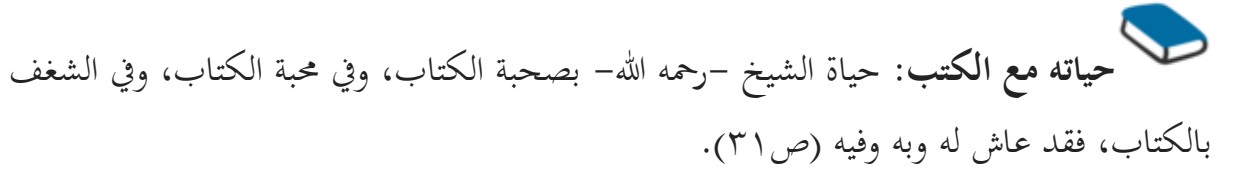 حياته مع الكتب: حياة الشيخ –رحمه الله– بصحبة الكتاب، وفي محبة الكتاب، وفي الشغف
بالكتاب، فقد عاش له وبه وفيه (ص٣١).